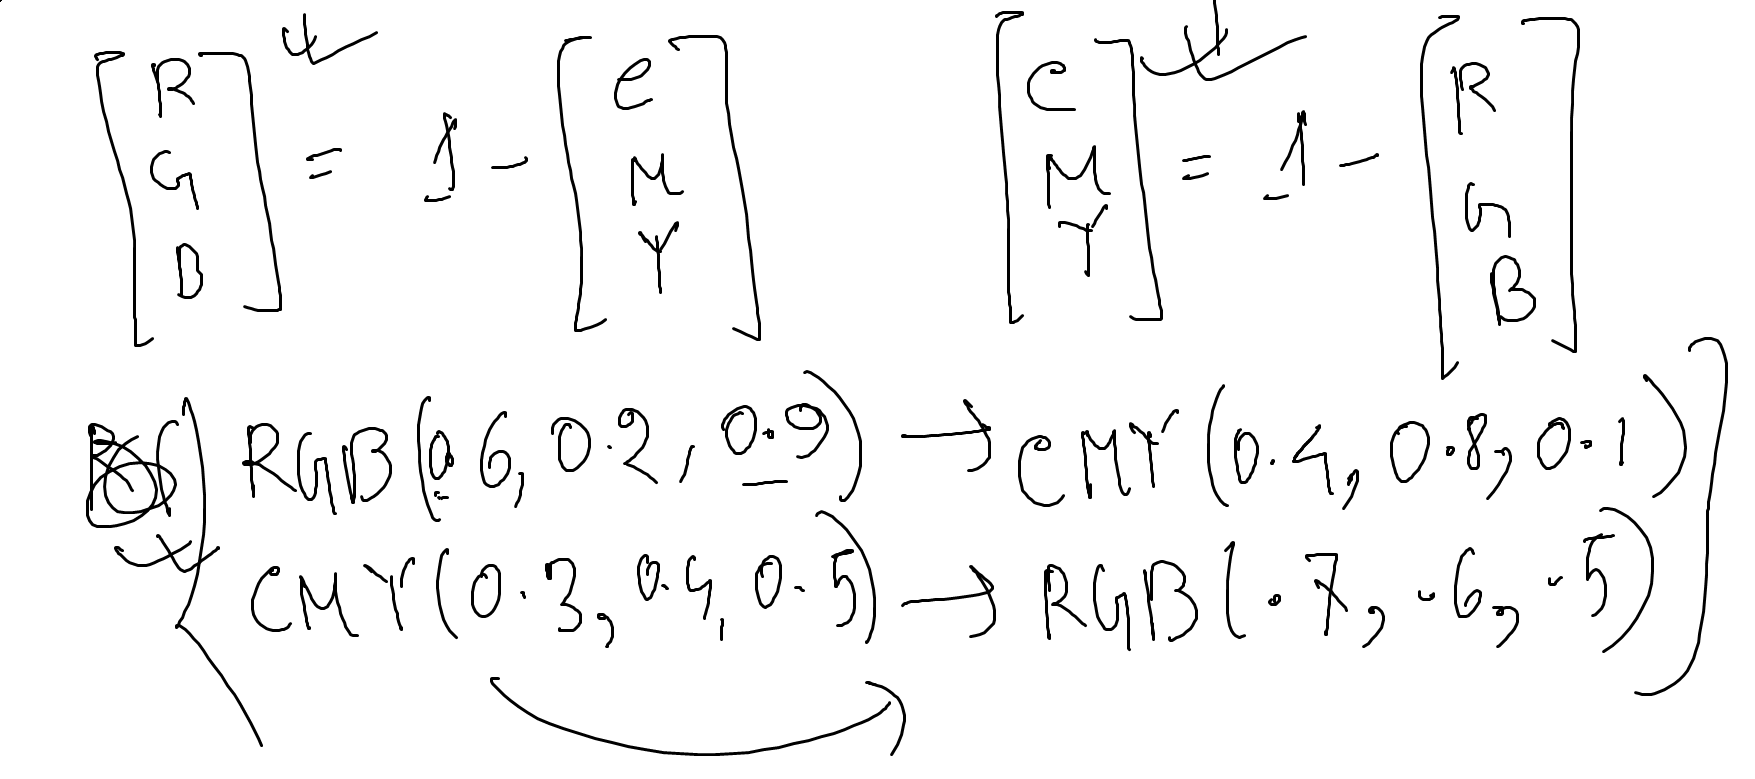 [R G B] = 1 - [C M Y]
[C M Y] = 1 - [R G B]
RGB(0.6, 0.2, 0.9) → CMY(0.4, 0.8, 0.1)
CMY(0.3, 0.4, 0.5) → RGB(.7, .6, .5)